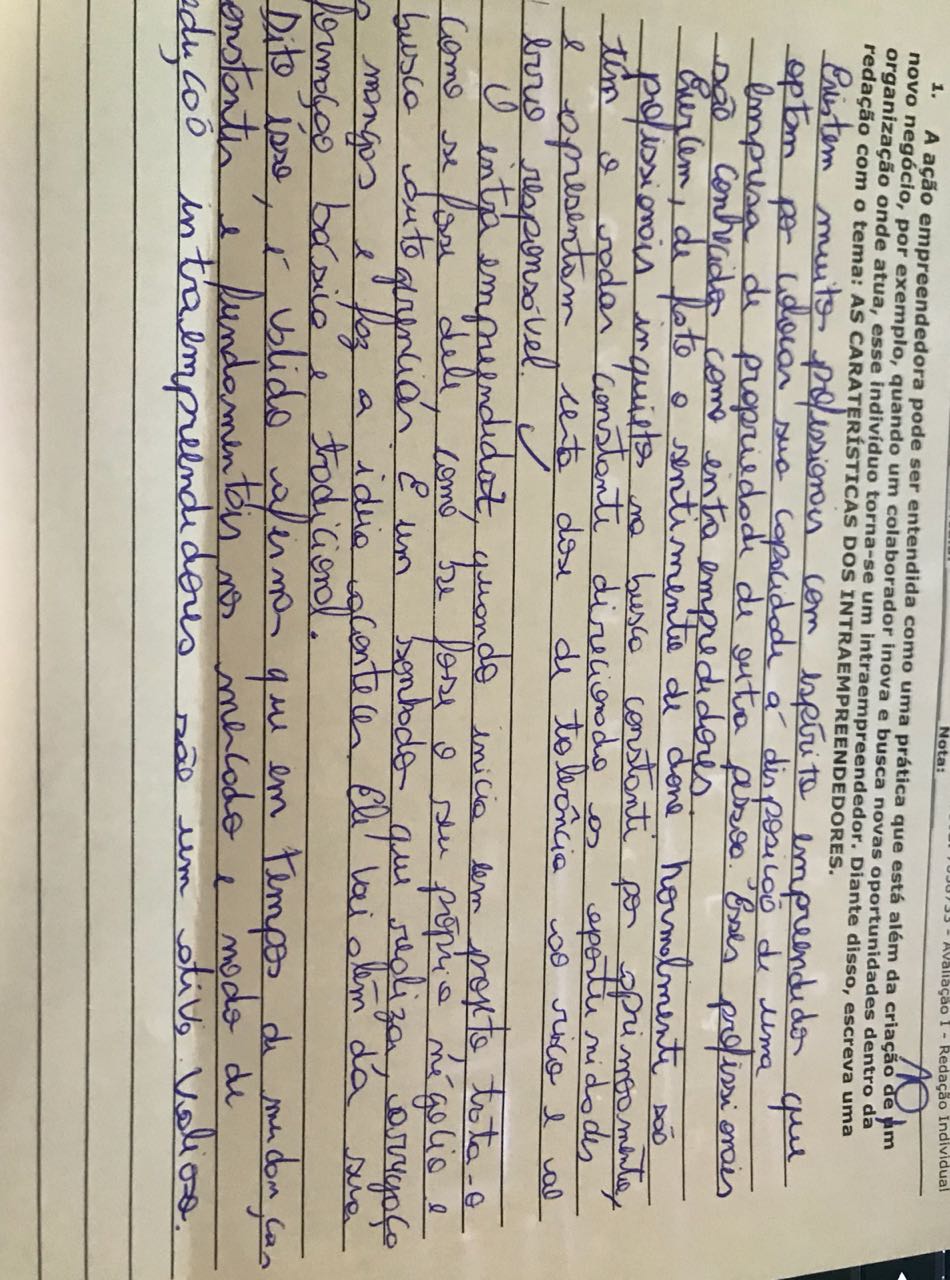 - Avaliação I - Redação Individual
Nota:
10
1. A ação empreendedora pode ser entendida como uma prática que está além da criação de um
novo negócio, por exemplo, quando um colaborador inova e busca novas oportunidades dentro da
organização onde atua, esse indivíduo torna-se um intraempreendedor. Diante disso, escreva uma
redação com o tema: AS CARATERÍSTICAS DOS INTRAEMPREENDEDORES.
Existem muitos profissionais com espírito empreendedor que
optam por colocar sua capacidade á disposição de uma
empresa de propriedade de outra pessoa. Esses profissionais
são conhecidos como entra emprededores.
Exerçem, de fato o sentimento de dono normalmente são
profissionais inquietos na busca constante por aprimoamento,
têm o radar constante direcionado as oportunidades
e apresentam certa dose de tolerância ao risco e ao
erro responsável.
O intra empreendedor, quando inicia em projeto trata-o
como se fosse dele, como se fosse o seu próprio négocio e
busca autogerenciar. É um sonhador que realiza, arregaça
s mangas e faz a ideia acontecer. Ele vai além da sua
formação básica e tradicional.
Dito isso, é valido afirmar que em tempos de mudanças
onstantes e fundamentais no mercado e modo de
edução intraempreendedores são um ativo valioso.